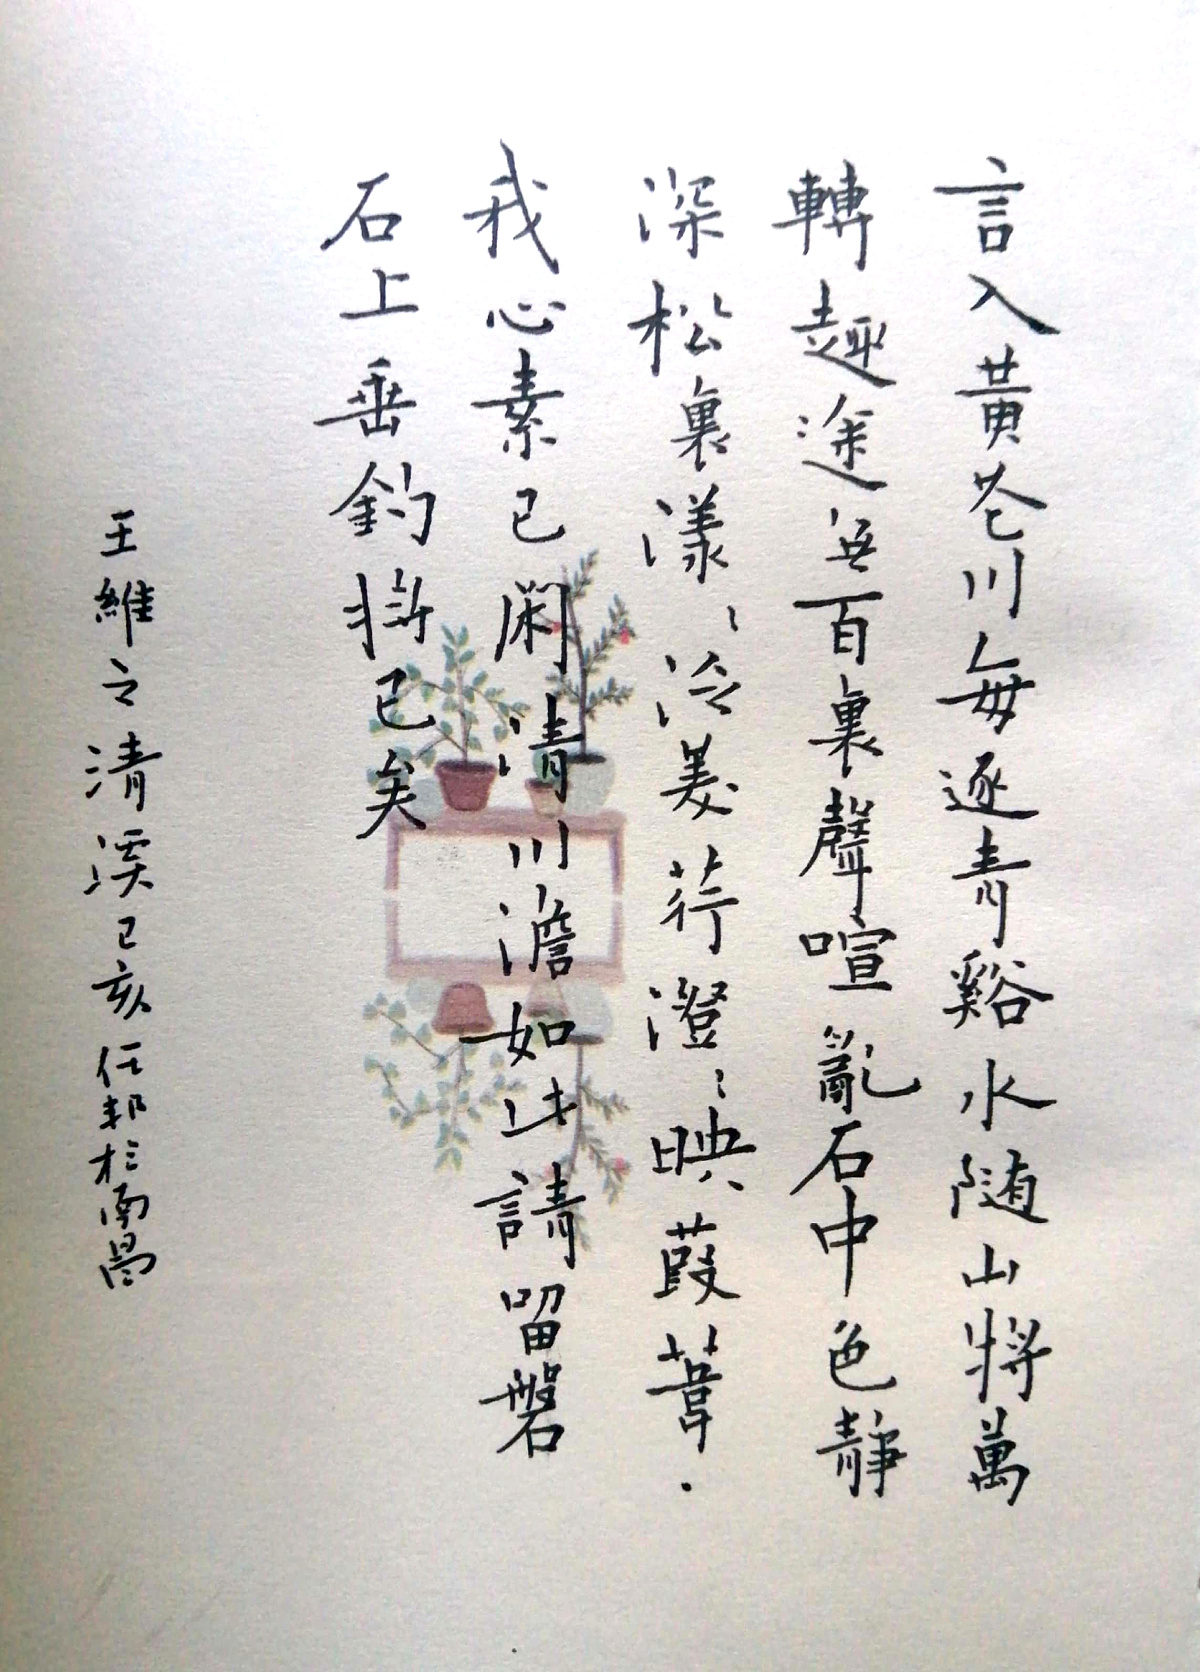 言入黃花川每逐青谿水随山將萬
轉趣途無百裏聲喧亂石中色静
深松裏漾〻泛菱荇澄〻映葭葦.
我心素已閑清川澹如此請留磐
石上垂釣将已矣
王維之清溪己亥任邦於南昌